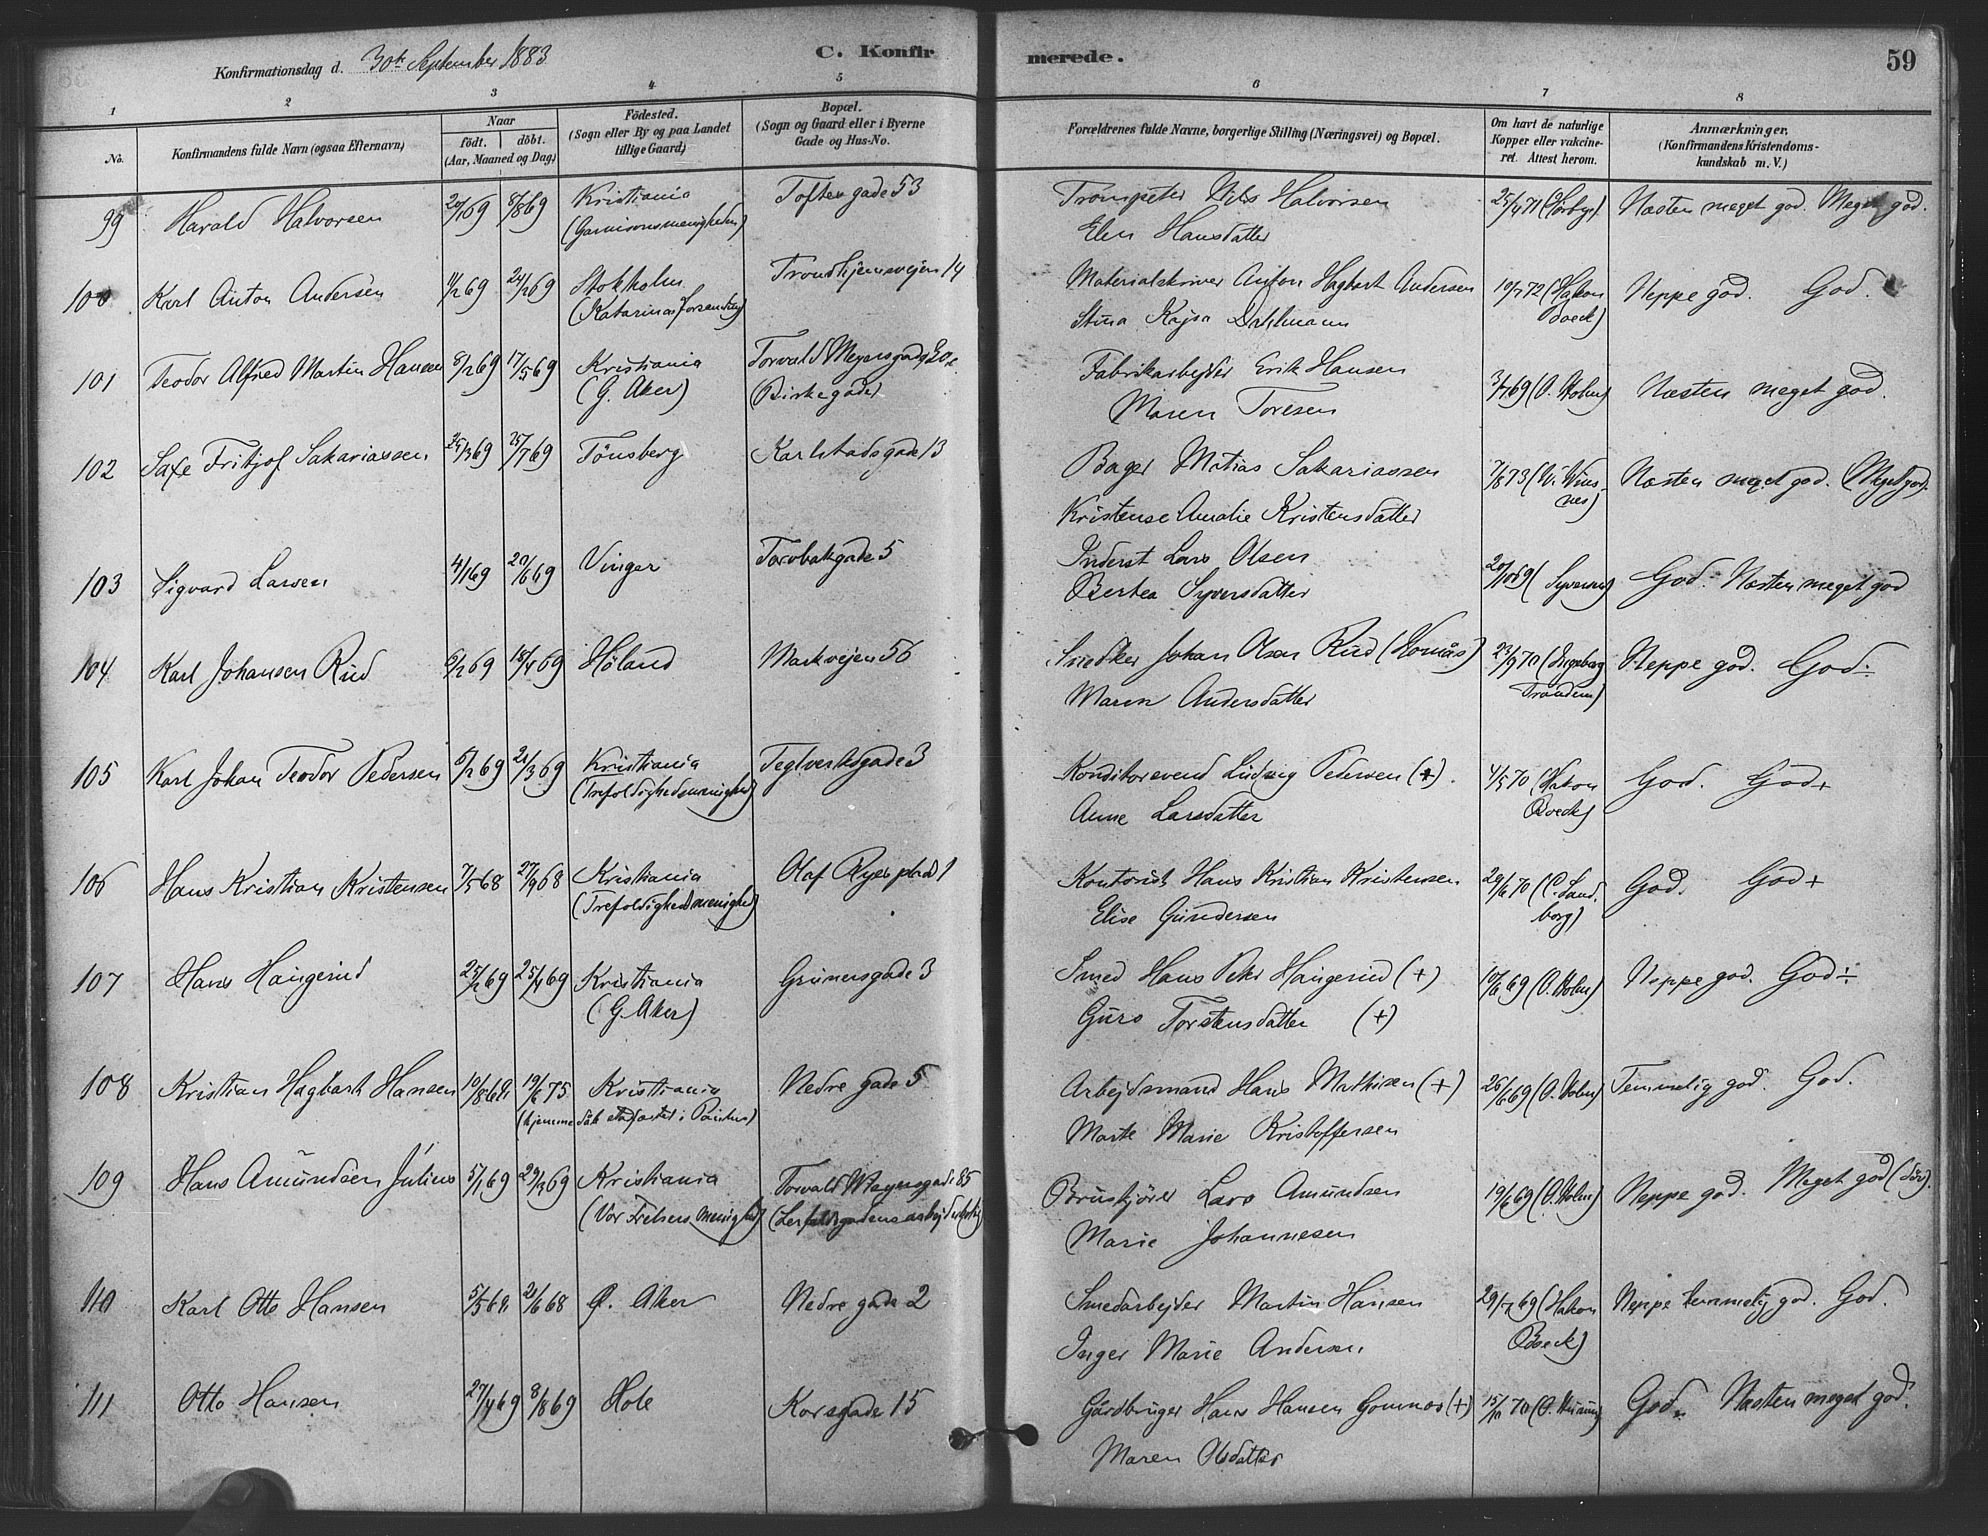 Konfirmationsdag d. 30te September 1883
C. Konfirmerede.
59
1 2 3 4 5 6 7 8
No.
Konfirmandens fulde Navn (ogsaa Efternavn)
Naar
födt. döbt.
(Aar, Maaned og Dag)
Födested.
(Sogn eller By og paa Landet
tillige Gaard)
Bopæl.
(Sogn og Gaard eller i Byerne
Gade og Hus-No.
Forældrenes fulde Navne, borgerlige Stilling (Næringsvei) og Bopæl.
Om havt de naturlige
Kopper eller vakcine-
ret. Attest herom.
Anmærkninger.
(Konfirmandens Kristendoms-
kundskab m. V.)
99 Harald Halvorsen 20/1 69 8/8 69 Kristiania Toftes gade 53 Trompeter Nils Halvorsen 25/4 71 Næsten meget god. Meget god.
(Garnisonsmenigheden) Elen Hansdatter
100 Karl Anton Andersen 24/2 69 Stokholm Trondhjemsvejen 14 Materialskriver Anton Hagbart Andersen 19/7 72 (Hakon Neppe god. God.
(Katarinas Forsamling) Stina Kajsa Dahlmann Boeck)
101 Teodor Alfred Martin Hansen 8/2 69 17/5 69 Kristiania Torvald Meyersgade 30 Fabrikarbejder Erik Hansen 3/7 69 (O. Holm) Næsten meget god.
(G. Aker) (Birkegade) Maren Toresen
102 Saxe Fritjof Sakariassen 25/3 69 25/7 69 Tönsberg Karlstadsgade 13 Bager Matias Sakariassen 7/8 73 (W. Wins- Næsten meget god. (Meget god).
nes) Kristense Amalie Kristensdatter
103 Sigvard Larsen 4/1 69 20/6 69 Vinger Torvbakgade 5 Inderst Lars Olsen 20/10 69 God. Næsten meget god
Bertea Syversdatter
104 Karl Johansen Rud 6/2 69 18/4 69 Höland Markvejen 56 Snedker Johan Olsen Rud 23/9 70 (Ingeborg Neppe god. God÷
Maren Andersdatter
105 Karl Johan Teodor Pedersen 6/2 69 21/3 69 Kristiania Teglverksgade 3 Konditorsvend Ludvig Pedersen (+). 4/5 70 (Hakon God. God+
(Trefoldighedsmenighed) Anne Larsdatter Boeck)
106 Hans Kristian Kristensen 7/5 68 27/9 68 Kristiania Olaf Ryes plads 1 Kontorist Hans Kristian Kristensen 29/6 70 (C. Sand- God. God+
(Trefoldighedsmenighed) Elise Gundersen borg)
107 Hans Haugerud 25/2 69 25/4 69 Kristiania Grunersgade 3 Smed Hans Peter Haugerud (+) 10/6 69 (O. Holm) Neppe god. God÷
(G. Aker) Guro Torstensdatter (+)
108 Kristian Hagbart Hansen 10/8 68 19/6 75 Kristiania Nedre gade 5 Arbejdsmand Hans Mathisen (+) 26/6 69 (O. Holm) Temmelig god. God.
(hjemmedöbt stadfæstet i Paulus) Marte Marie Kristoffersen
109 Hans Amundsen Julius 5/1 69 29/3 69 Kristiania Torvald Meyersgade 85 Bruskjörer Lars Amundsen 19/6 69 (O. Holm) Neppe god. Meget god
(Vor Frelsers menighed) Marie Johannesen
110 Karl Otto Hansen 5/5 68 21/6 68 Ö. Aker Nedre gade 2 Smedarbejder Martin Hansen 29/7 69 (Hakon Neppe temmelig god. God.
Inger Marie Andersen Boeck)
111 Otto Hansen 27/4 69 8/8 69 Hole Korsgade 15 Gårdbruger Hans Hansen Gomnæs (+) 15/10 70 God. Næsten meget god.
Maren Olsdatter